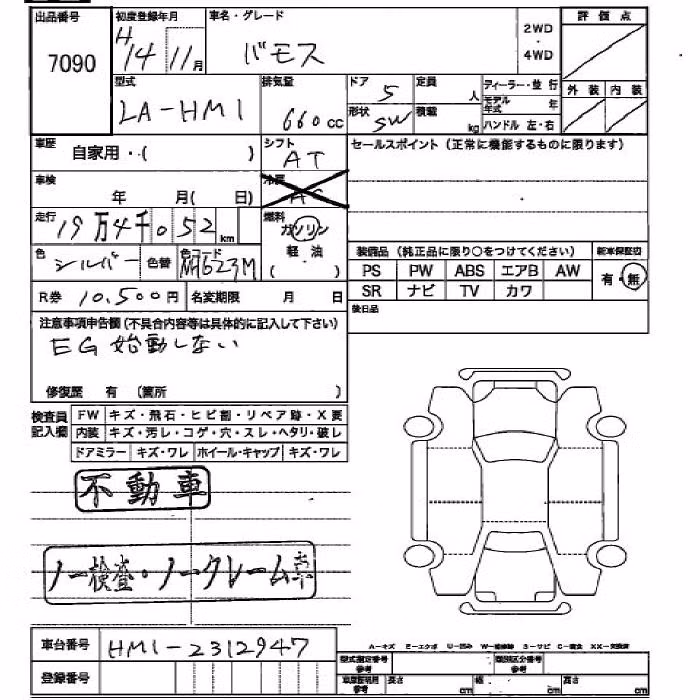 出品番号 初度登録年月 車名・グレード 2WD・4WD 評価点
7090 H14 11月 バモス
型式 排気量 ドア 定員 ディーラー・並行 外装 内装
LA-HM1 660cc 5 人 モデル年式 年
形状 SW 積載 kg ハンドル 左・右
車歴 自家用・( ) シフト AT セールスポイント(正常に機能するものに限ります)
車検 年 月( 日) 冷房 AC
走行 19万4千052km 燃料 ガソリン
色 シルバー 色替 色コード NH623M 軽油 ( ) 装備品(純正品に限り○をつけてください) 新車保証書
PS PW ABS エアB AW 有・無
R券 10,500円 名変期限 月 日 SR ナビ TV カワ
後日品
注意事項申告欄(不具合内容等は具体的に記入して下さい)
EG 始動しない
修復歴 有 (箇所 )
検査員記入欄 FW キズ・飛石・ヒビ割・リペア跡・X要
内装 キズ・汚レ・コゲ・穴・スレ・ヘタリ・破レ
ドアミラー キズ・ワレ ホイール・キャップ キズ・ワレ
不動車
ノー検査・ノークレーム
車台番号 HM1-2312947 A-キズ E-エクボ
登録番号 型式指定番号 参考 類別区分番号 参考
長さ cm 幅 cm 高さ cm